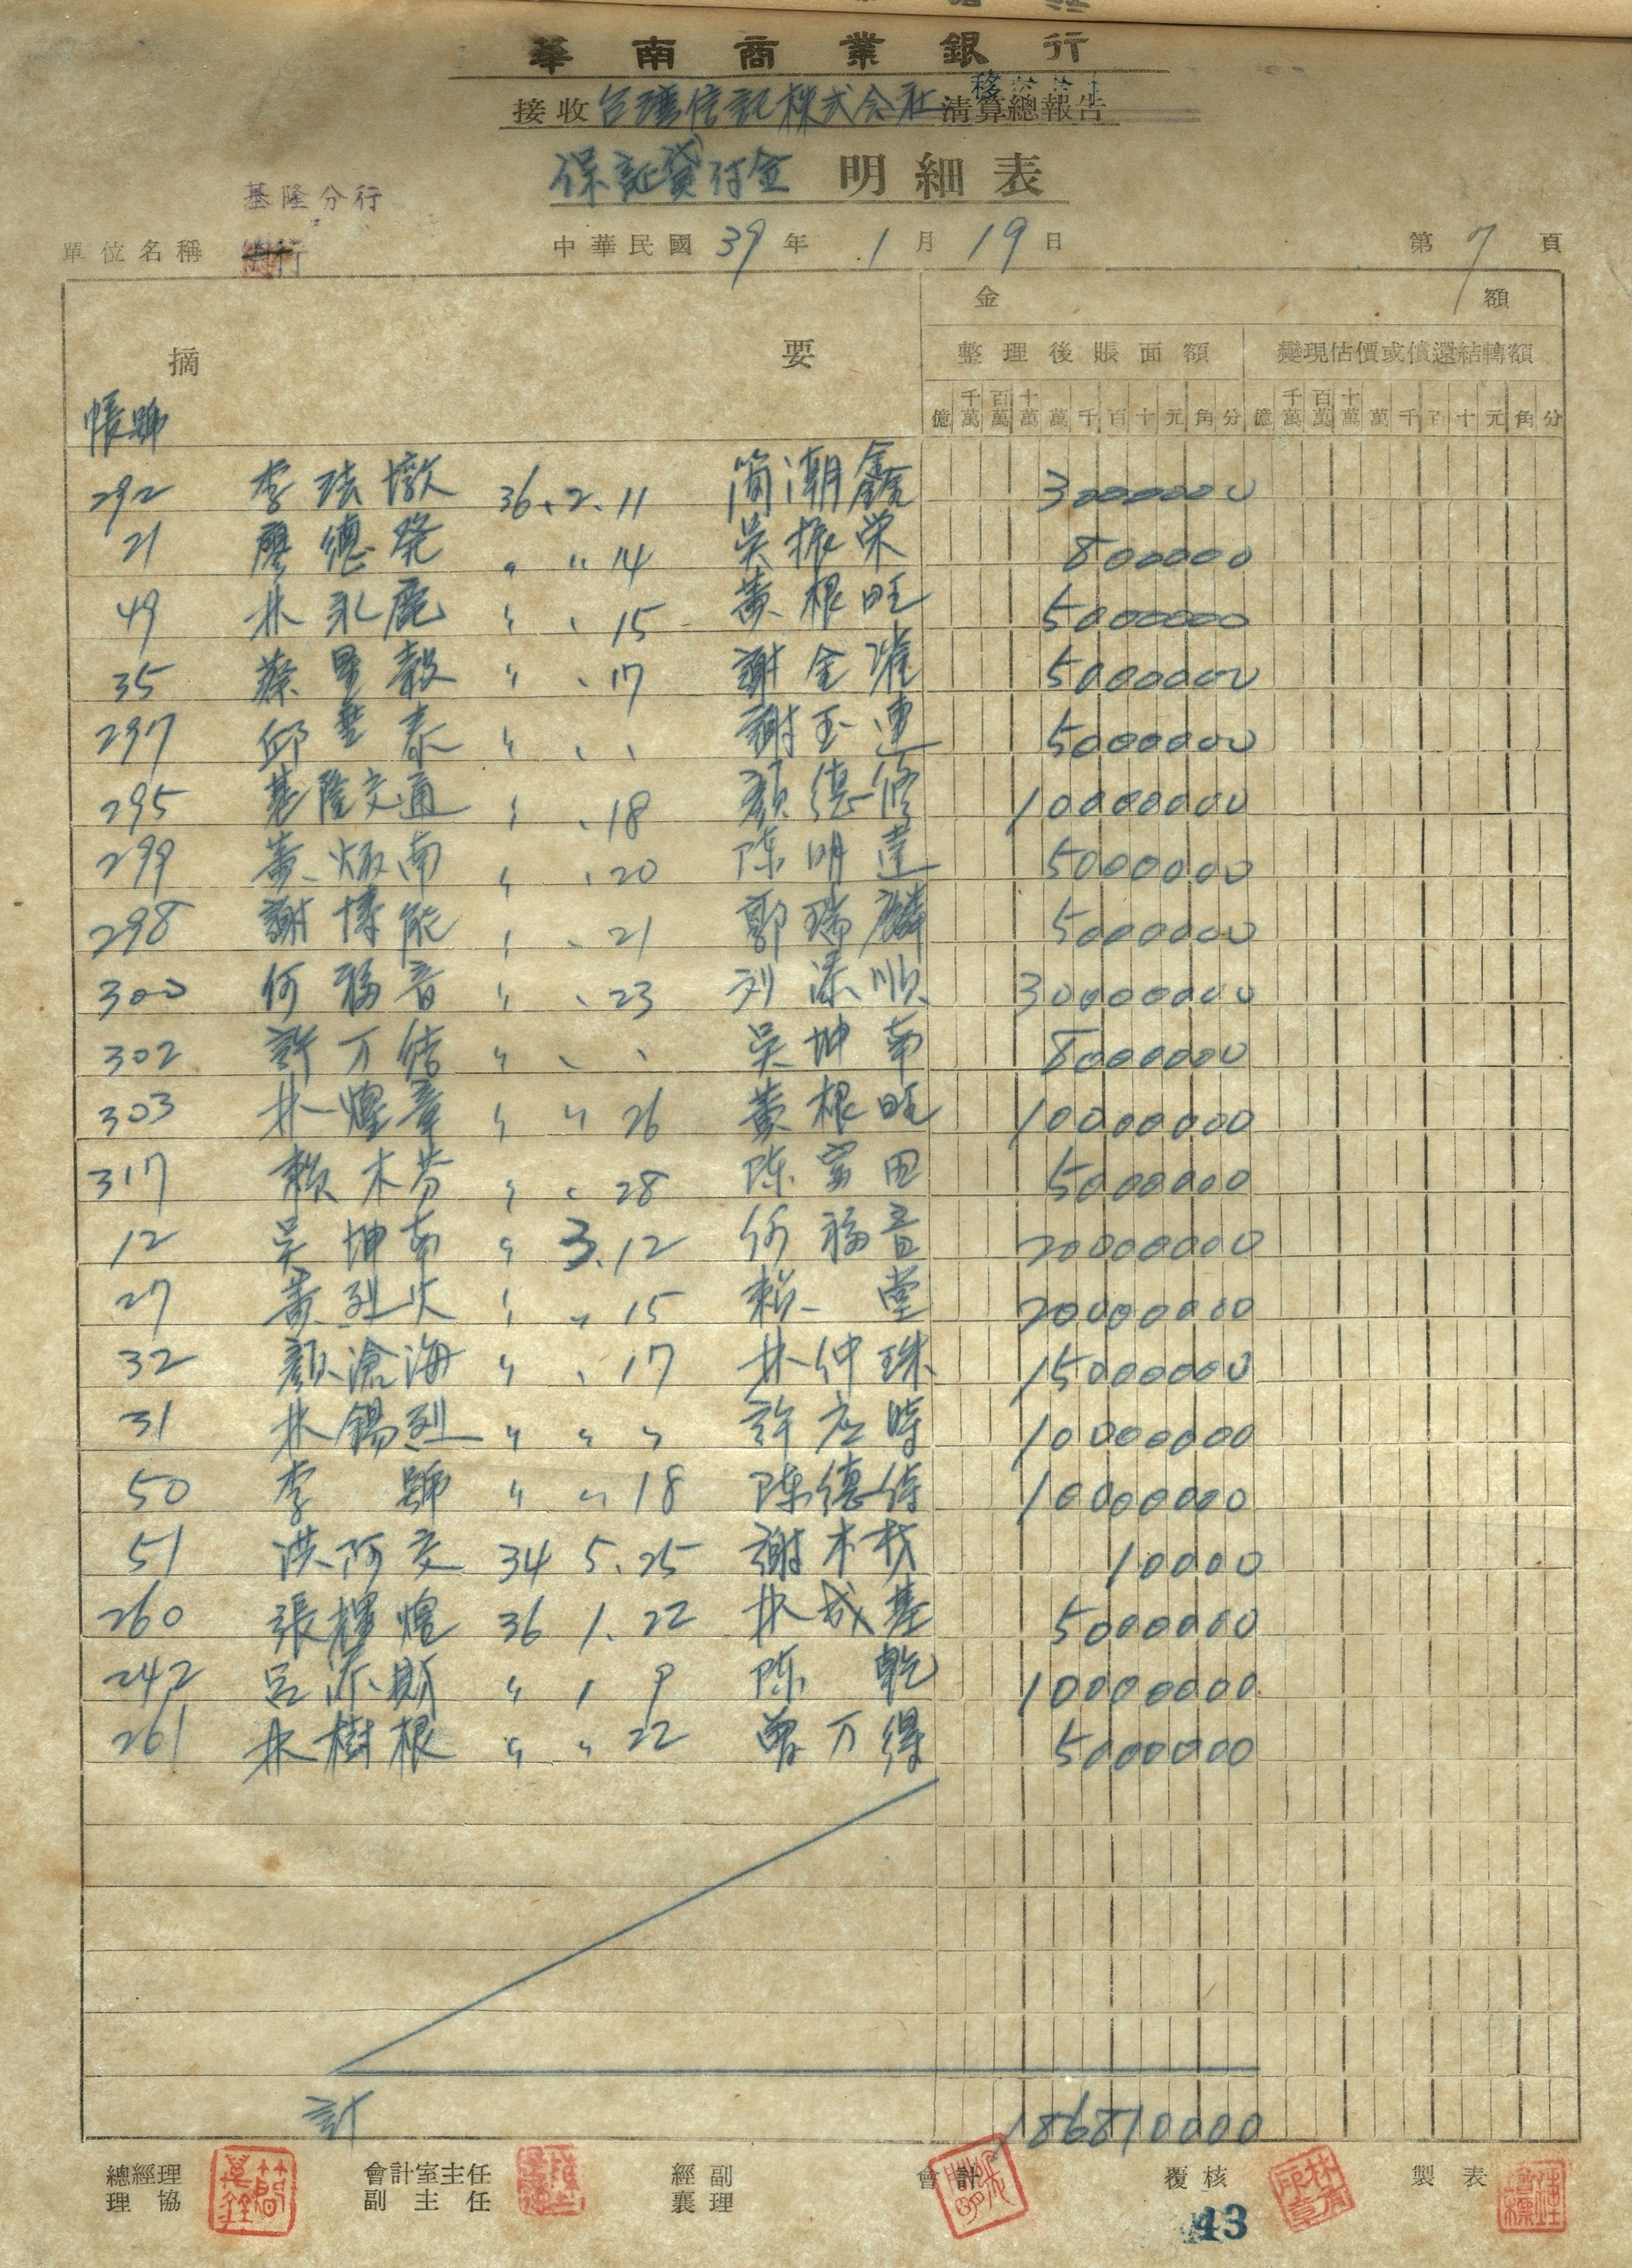 華南商業銀行
接收台灣信託株式会社清算總報告
保証貸付金 明細表
基隆分行
單位名稱 中華民國39年1月19日 第7頁
金額
摘要 整理後賬面額 變現估價或償還結轉額
億 千萬 百萬 十萬 萬 千 百 十 元 角 分 億 千萬 百萬 十萬 萬 千 百 十 元 角 分
帳號
292 李 墩 36.2.11 簡潮鑫 3000000
21 廖德発 〃 〃 14 吳振栄 800000
49 林永麗 〃 〃 15 黃根旺 5000000
35 蔡 穀 〃 〃 17 謝金 5000000
297 邱 泰 〃 〃 〃 謝玉連 5000000
295 基隆交通 〃 〃 18 顏德修 10000000
299 黃 南 〃 〃 20 陳明 5000000
298 謝博能 〃 〃 21 郭瑞麟 5000000
300 何福音 〃 〃 23 刘添順 30000000
302 許万結 〃 〃 〃 吳坤南 8000000
303 林煌章 〃 〃 26 黃根旺 10000000
317 賴木芬 〃 〃 28 陳富田 5000000
12 吳坤南 〃 3.12 何福音 20000000
27 黃烈火 〃 〃 15 賴 堂 20000000
32 顏滄海 〃 〃 17 林仲珠 15000000
31 林錫烈 〃 〃 〃 許应時 10000000
50 李 號 〃 〃 18 陳德 10000000
51 洪阿交 34 5.25 謝木 10000
260 張輝煌 36 1.22 林成基 5000000
242 呂添 〃 1 9 陳 乾 10000000
261 林樹根 〃 〃 22 曾万得 5000000
計 186810000
總經理 會計室主任 經副 會計 覆核 製表
理協 副主任 襄理
43